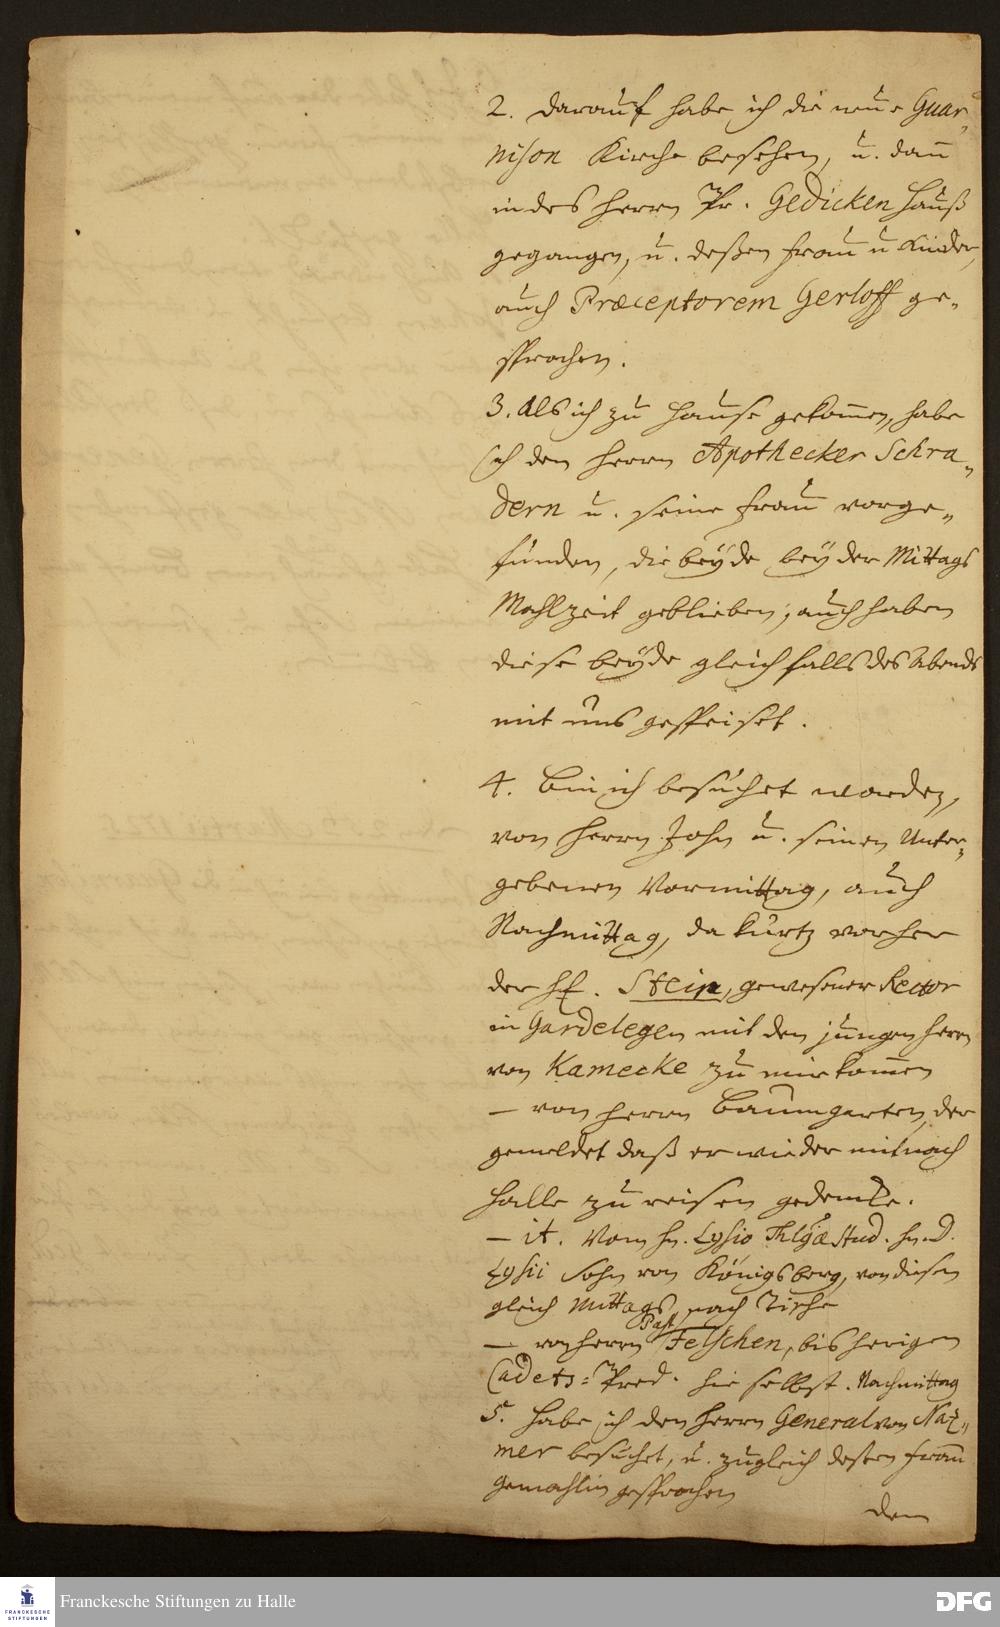 2. Darauf habe ich die neue Guar-
nison Kirche besehen, u. dann
in des Herrn Pr. Gedicken Hauß
gegangen, u. deßen Frau u Kinder,
auch Præceptorem Gerloff ge-
sprochen.
3. Als ich zu Hause gekom̅en, habe
ich den Herrn Apothecker Schra-
dern u. seine Frau vorge-
funden, die beyde bey der Mittags
Mahlzeit geblieben, auch haben
diese beyde gleichfalls des Abends
mit uns gespeiset.
4. Bin ich besuchet worden,
von Herrn John u. seinen Unter-
gebenen Vormittag, auch
Nachmittag, da kurtz vorher
der H. Stein, gewesener Rector
in Gardelegen mit den jungen Herrn
von Kamecke zu mir kom̅en
— von Herrn Baumgarten, der
gemeldet daß er wieder mit nach
Halle zu reisen gedencke.
— it. Vom Hn. Lysio Stud. Hn. D.
Lysii Sohn von Königsberg, von diesen
gleich Mittags nach Tische
— von Herrn Past. Felschen, bisherigen
Cadets-Pred. hieselbst. Nachmittag
5. Habe ich den Herrn General von Naz-
mer besuchet, u. zugleich deßen Frau
Gemahlin gesprochen
den
Franckesche Stiftungen zu Halle
FRANCKESCHE
STIFTUNGEN
DFG